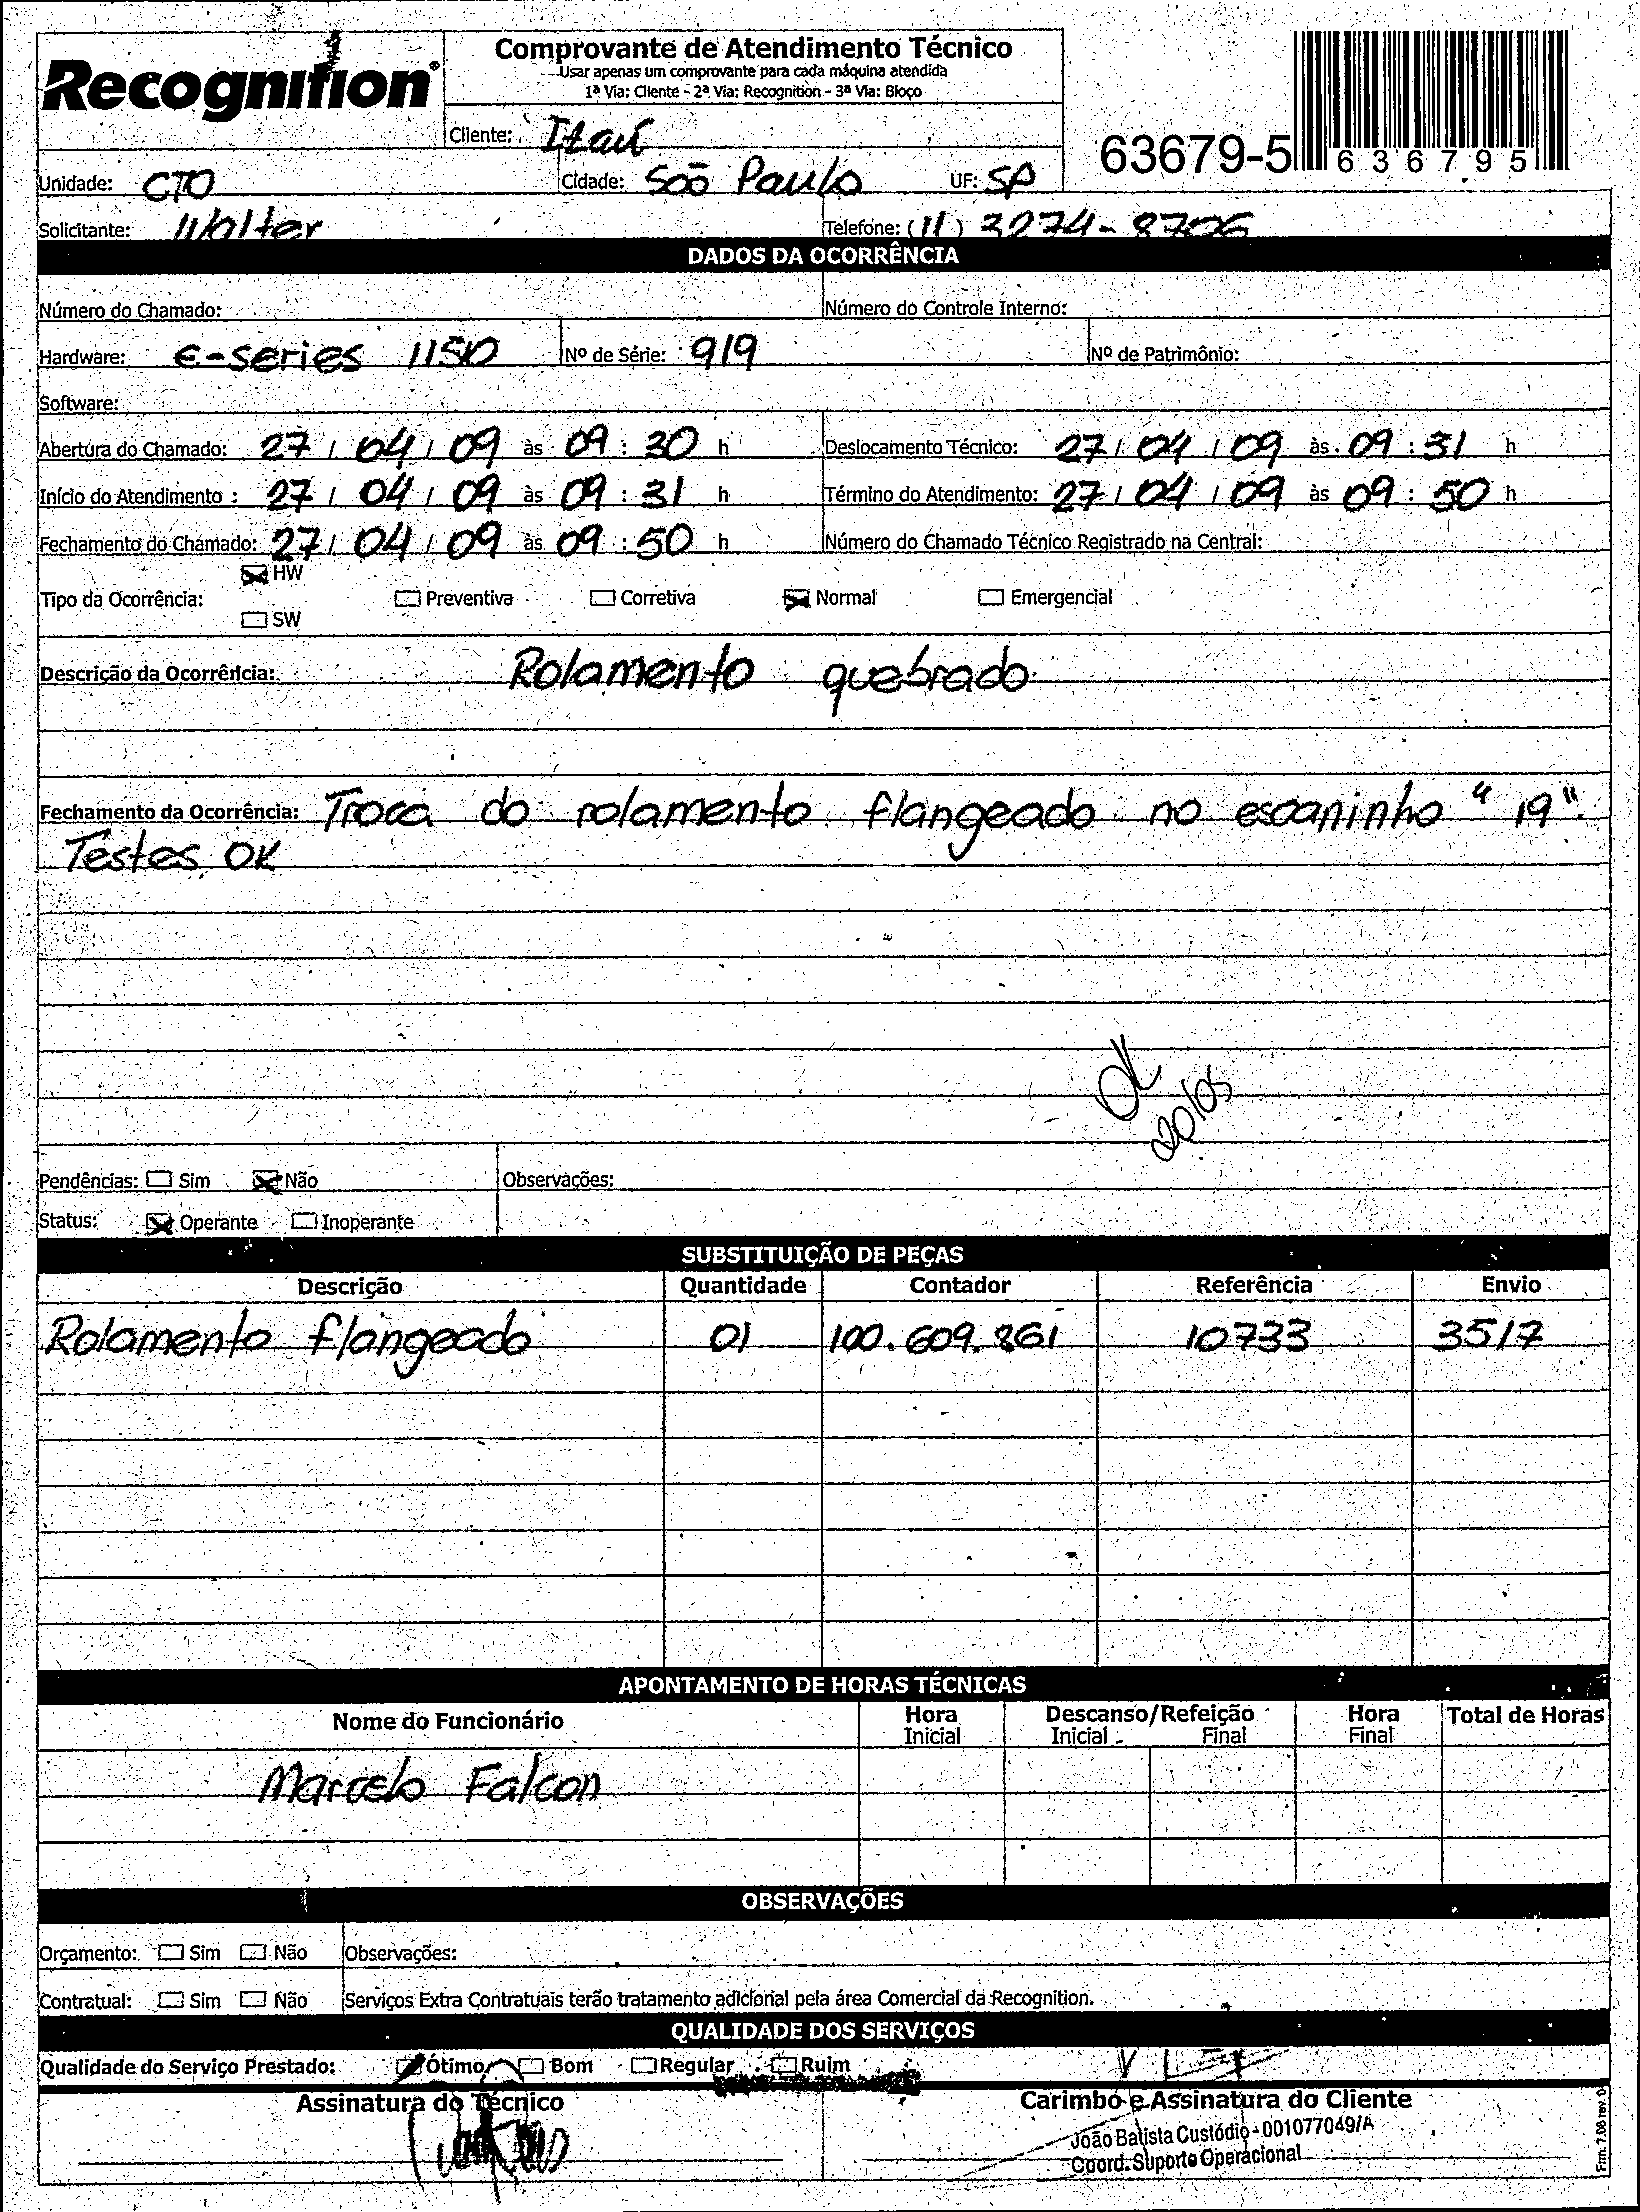 Recognition®
Comprovante de Atendimento Técnico
Usar apenas um comprovante para cada máquina atendida
1ª Via: Cliente - 2ª Via: Recognition - 3ª Via: Bloco
Cliente: Itaú
63679-5
636795
Unidade: CTO Cidade: São Paulo UF: SP
Solicitante: Walter Telefone: (11) 3274-8706
DADOS DA OCORRÊNCIA
Número do Chamado: Número do Controle Interno:
Hardware: E-series 1150 Nº de Série: 919 Nº de Patrimônio:
Software:
Abertura do Chamado: 27/04/09 às 09:30 h Deslocamento Técnico: 27/04/09 às 09:31 h
Início do Atendimento: 27/04/09 às 09:31 h Término do Atendimento: 27/04/09 às 09:50 h
Fechamento do Chamado: 27/04/09 às 09:50 h Número do Chamado Técnico Registrado na Central:
HW
Tipo da Ocorrência: Preventiva Corretiva Normal Emergencial
SW
Descrição da Ocorrência: Rolamento quebrado
Fechamento da Ocorrência: Troca do rolamento flangeado no escaninho "19".
Testes OK
OK
20/05
Pendências: Sim Não Observações:
Status: Operante Inoperante
SUBSTITUIÇÃO DE PEÇAS
Descrição Quantidade Contador Referência Envio
Rolamento flangeado 01 100.609.861 10733 3517
APONTAMENTO DE HORAS TÉCNICAS
Nome do Funcionário Hora Inicial Descanso/Refeição Inicial Final Hora Final Total de Horas
Marcelo Falcon
OBSERVAÇÕES
Orçamento: Sim Não Observações:
Contratual: Sim Não Serviços Extra Contratuais terão tratamento adicional pela área Comercial da Recognition.
QUALIDADE DOS SERVIÇOS
Qualidade do Serviço Prestado: Ótimo Bom Regular Ruim
Assinatura do Técnico Carimbo e Assinatura do Cliente
João Batista Custódio - 001077049/A
Coord. Suporte Operacional